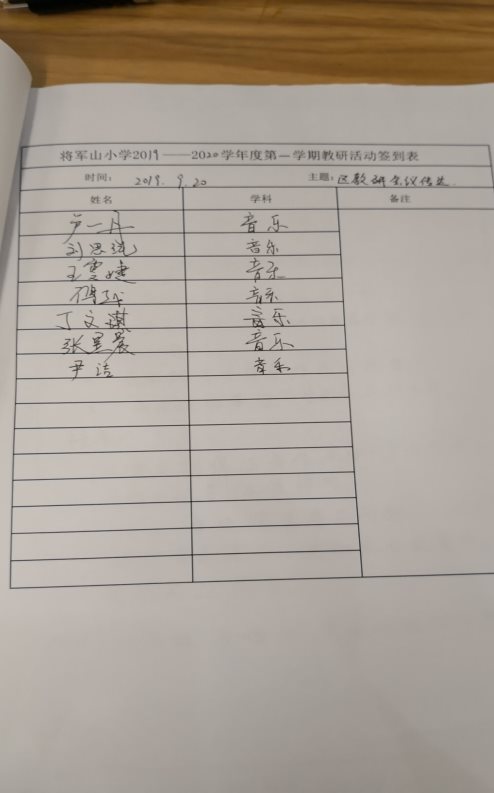 将军山小学2019——2020学年度第一学期教研活动签到表
时间： 2019.9.20 主题：区教研会议传达.
姓名 学科 备注
卢一丹 音乐
刘思 音乐
王雯婕 音乐
音乐
丁文琪 音乐
张昱晨 音乐
尹洁 音乐